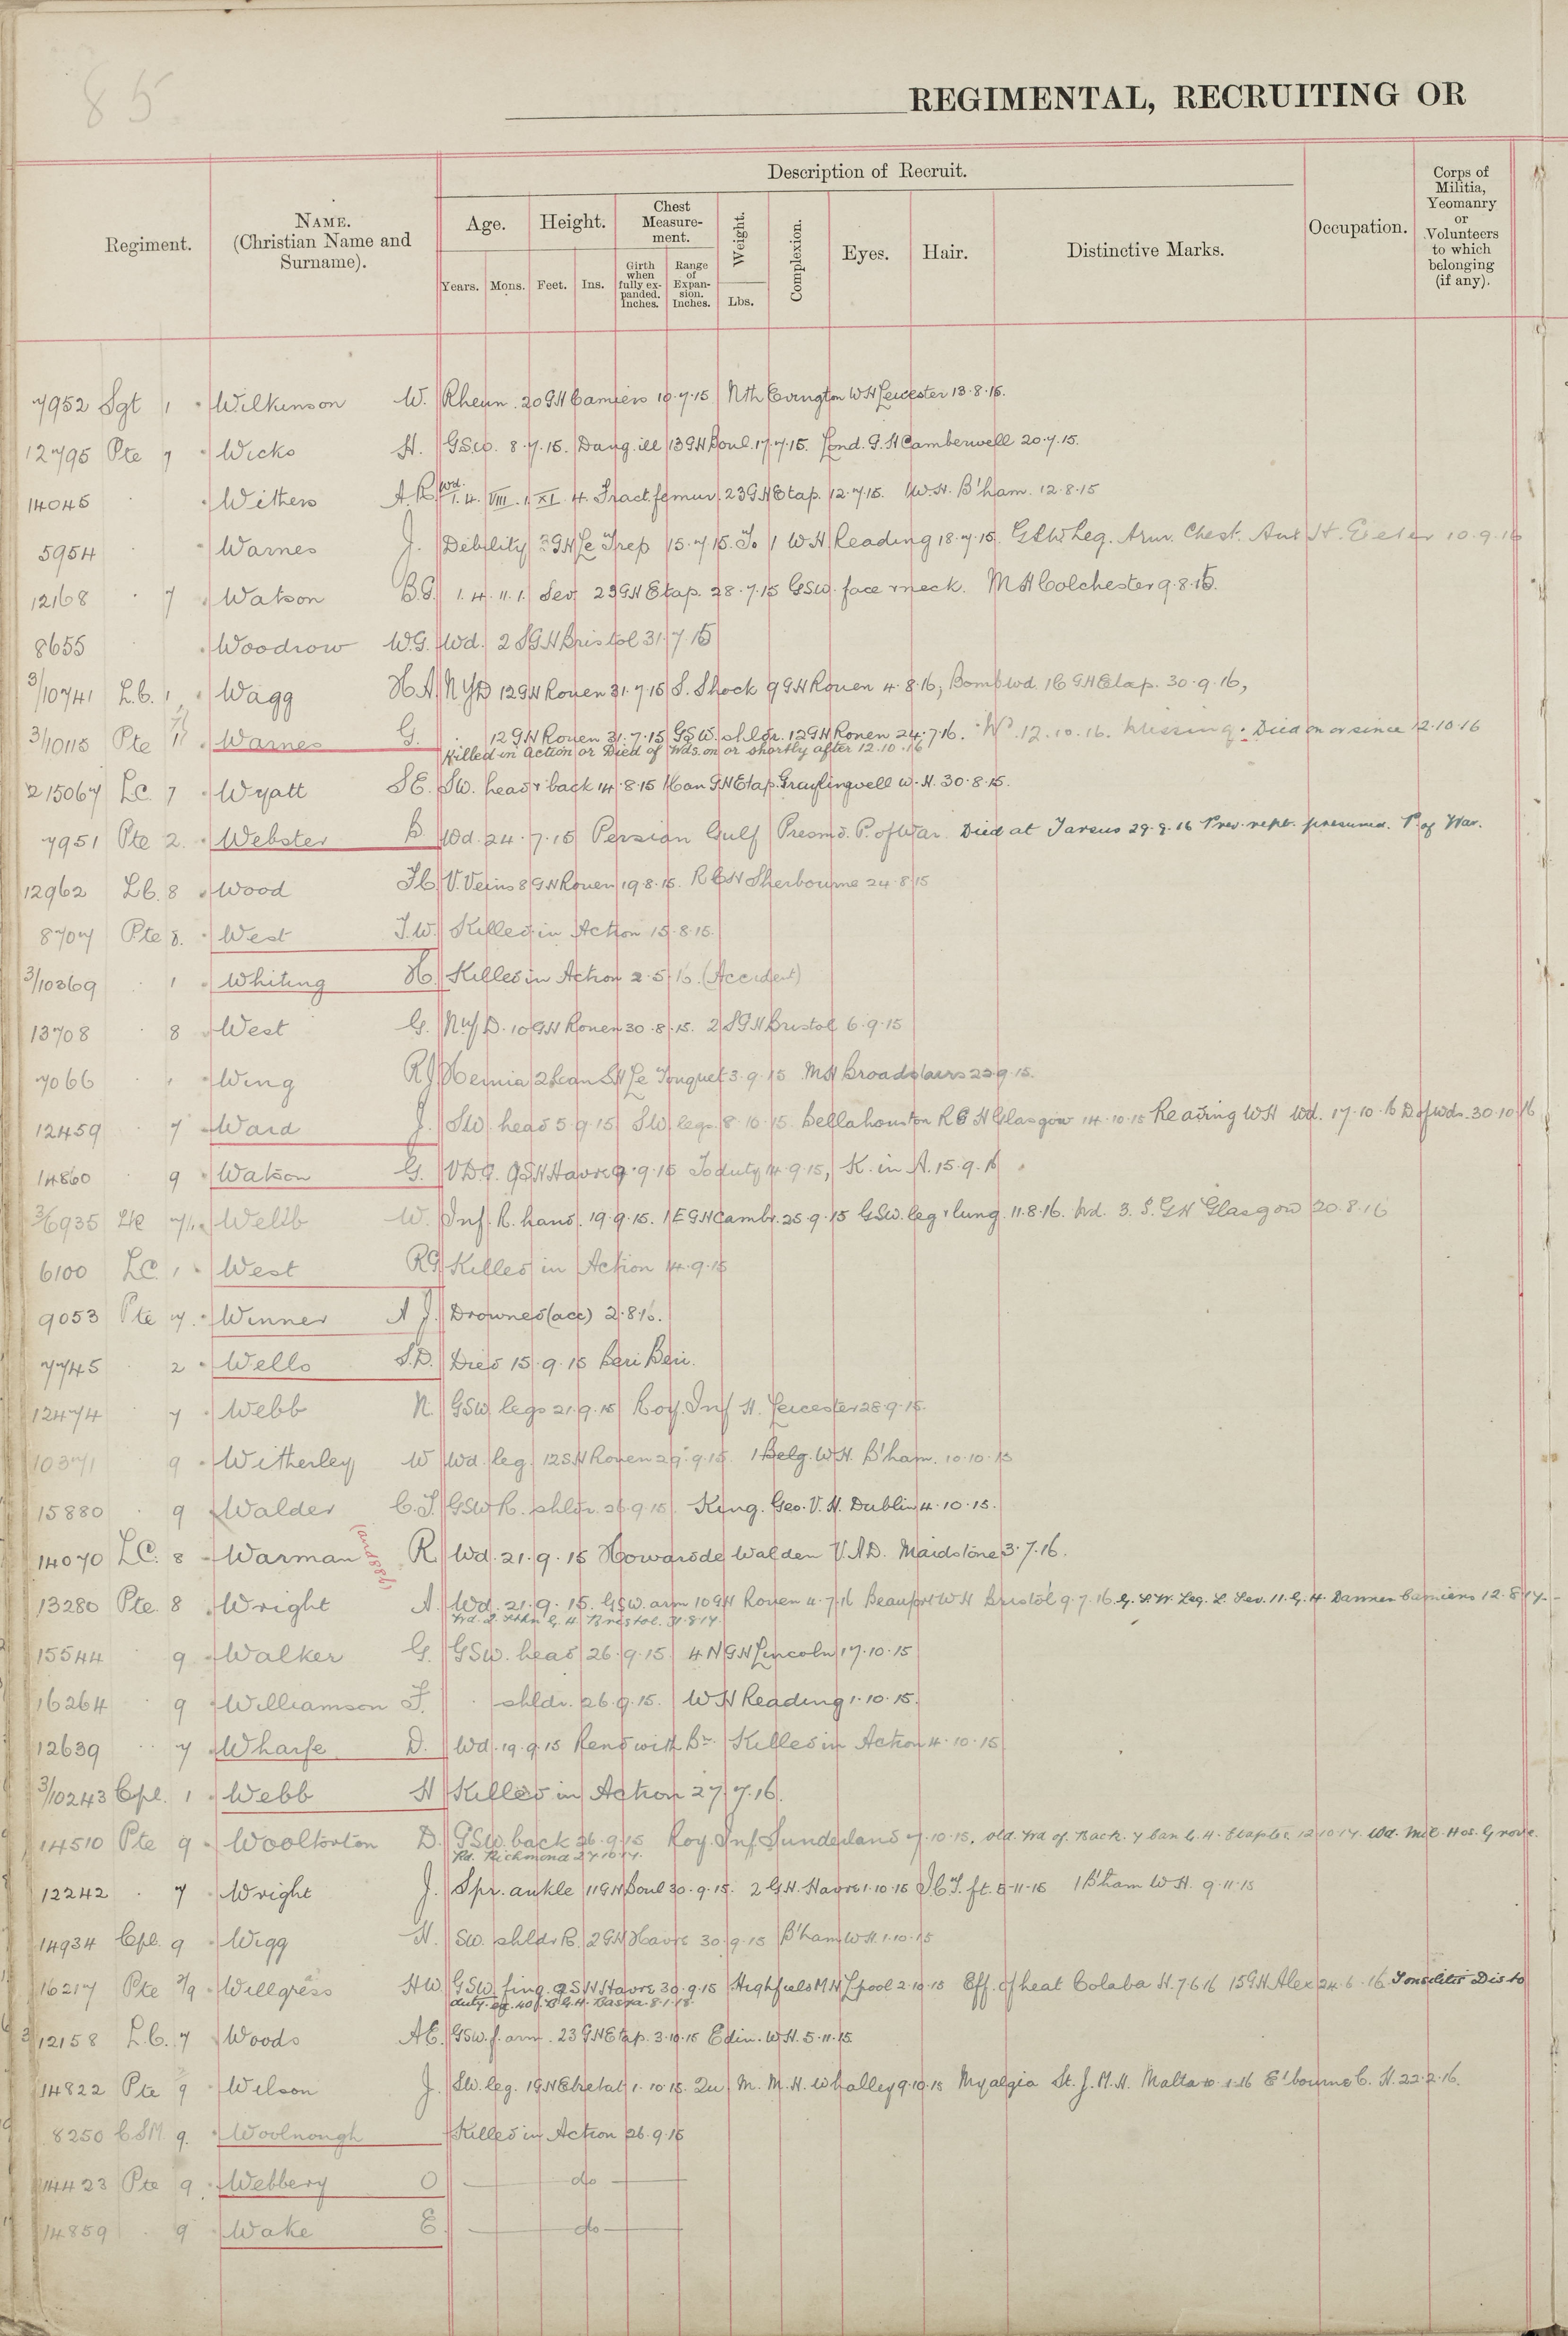 85
REGIMENTAL, RECRUITING OR
Description of Recruit.
Regiment.
NAME.
(Christian Name and
Surname).
Age.
Height.
Chest
Measure-
ment.
Weight.
Complexion.
Eyes.
Hair.
Distinctive Marks.
Occupation.
Corps of
Militia,
Yeomanry
or
Volunteers
to which
belonging
(if any).
Years.
Mons.
Feet.
Ins.
Girth
when
fully ex-
panded.
Inches.
Range
of
Expan-
sion.
Inches.
Lbs.
7952 Sgt 1 Wilkinson W. Rheum. 20 GH Camiers 10.7.15 Nth Evington WH Leicester 13.8.15.
12795 Pte 7 Wicks H. GSW. 8.7.15. Dang. ill 13 GH Boul. 17.7.15. Lond. G.H Camberwell 20.7.15.
14045 Withers A.R. Wd. I. 4. VIII. 1. XI. 4. Fract. femur. 23 GH Etap. 12.7.15. 1 W.H. B'ham. 12.8.15
5954 Warnes J. Debility 3 GH Le Trep 15.7.15. To 1 WH Reading 18.7.15. GSW Leg. Arm. Chest. 10.9.16
12168 7 Watson B.G. 1. 4. 11. 1. Sev 23 GH Etap. 28.7.15 GSW. face & neck. MH Colchester 9.8.15.
8655 Woodrow W.G. Wd. 2 SGH Bristol 31.7.15
3/10741 L.C. 1 Wagg H A. NYD 12 GH Rouen 31.7.15 S. Shock 9 GH Rouen 4.8.16, Bomb Wd. 16 GH Etap. 30.9.16,
3/10115 Pte Warnes G. 12 GH Rouen 31.7.15 GSW. shldr. 12 GH Rouen 24.7.16. Wd. 12.10.16. Missing. Died on or since 12.10.16
Killed in action or Died of Wds. on or shortly after 12.10.16
15067 L.C. 7 Wyatt S E. SW. head & back 14.8.15 1 Can GH Etap. Graylingwell W.H. 30.8.15.
7951 Pte 2. Webster B. Wd. 24.7.15 Persian Gulf Presmd. P. of War. Died at Tarsus 29.9.16 Prev. rept. presumed. P. of War.
12962 L.C. 8 Wood J C. V. Veins 8 GH Rouen 19.8.15. RCH Sherbourne 24.8.15
8707 Pte 8. West J.W. Killed in Action 15.8.15.
3/10369 1 Whiting H. Killed in Action 2.5.15. (Accident)
13708 8 West G. NYD. 10 GH Rouen 30.8.15. 2 SGH Bristol 6.9.15
7066 Wing R J Hernia 2 Can SH Le Touquet 3.9.15 MH Broadstairs 23.9.15.
12459 7 Ward J. SW. head 5.9.15 SW. legs. 8.10.15. Bellahouston RCH Glasgow 14.10.15 Reading WH Wd. 17.10.16 D of wds. 30.10.16
14860 9 Watson G. VDG. 9 SH Havre 9.9.15 To duty 14.9.15, K. in A. 15.9.16
6935 Webb W. Inf. R. hand. 19.9.15. 1 EGH Cambr. 25.9.15 GSW. leg & lung. 11.8.16. Wd. 3. S. GH Glasgow 20.8.16
6100 L.C. 1 West R G Killed in Action 14.9.15
9053 Pte 7. Winner A J. Drowned (acc) 2.8.15.
7745 2 Wells S.D. Died 15.9.15 Beri Beri.
12474 7 Webb N. GSW legs 21.9.15 Roy. Inf H. Leicester 28.9.15.
10371 9 Witherley W Wd. leg. 12 SH Rouen 29.9.15. 1 Belg. WH. B'ham. 10.10.15
15880 9 Walder C.J. GSW R. shldr. 26.9.15. King. Geo. V. H. Dublin 4.10.15.
14070 L.C. 8 Warman R Wd. 21.9.15 Howard de Walden V.A.D. Maidstone 3.7.16.
13280 Pte. 8 Wright A. Wd. 21.9.15. GSW. arm 10 GH Rouen 4.7.16 Beaufort WH Bristol 9.7.16. G.S.W. Leg. L. Sev. 11. G.H. Dannes Camiers 12.8.17.
Wd. 2. Sthn G.H. Bristol. 31.8.17.
15544 9 Walker G. GSW. head 26.9.15 4 NGH Lincoln 17.10.15
16264 9 Williamson F. shldr. 26.9.15. WH Reading 1.10.15.
12639 7 Wharfe D. Wd. 19.9.15 Remd with Bn. Killed in Action 4.10.15
3/10243 Cpl. 1 Webb H Killed in Action 27.7.16.
14510 Pte 9 Woolterton D. GSW back 26.9.15 Roy. Inf Sunderland 7.10.15. old. Wd of Back. 7 Can G.H. Etaples 12.10.17. Wd. Mil. Hos. Grove.
Rd. Richmond 27.10.17.
12242 7 Wright J. Spr. ankle 11 GH Boul 30.9.15. 2 GH. Havre 1.10.15 I C T. ft. 5.11.15 1 B'ham WH. 9.11.15
14934 Cpl. 9 Wigg H. SW. shldr R. 2 GH Havre 30.9.15 B'ham WH. 1.10.15
16217 Pte 7/9 Willgress H W GSW fing. 9 SH Havre 30.9.15 Highfields MH L'pool 2.10.15 Eff. of heat Colaba H. 7.6.16 15 GH Alex 24.6.16 Tonsilitis Dis to
duty. ex. 40. B.G.H. Basra. 8.1.18.
12158 L.C. 7 Woods A E. GSW. f. arm. 23 GH Etap. 3.10.15 Edin. WH. 5.11.15.
14822 Pte 9 Wilson J. SW. leg. 1 GH Etretat 1.10.15. Qu M. M.H. Whalley 9.10.15 Myalgia St. J.M.H. Malta 10.1.16 E'bourne C.H. 22.2.16.
8250 CSM 9. Woolnough Killed in Action 26.9.15
14423 Pte 9 Webbery O do
14859 9 Wake E. do